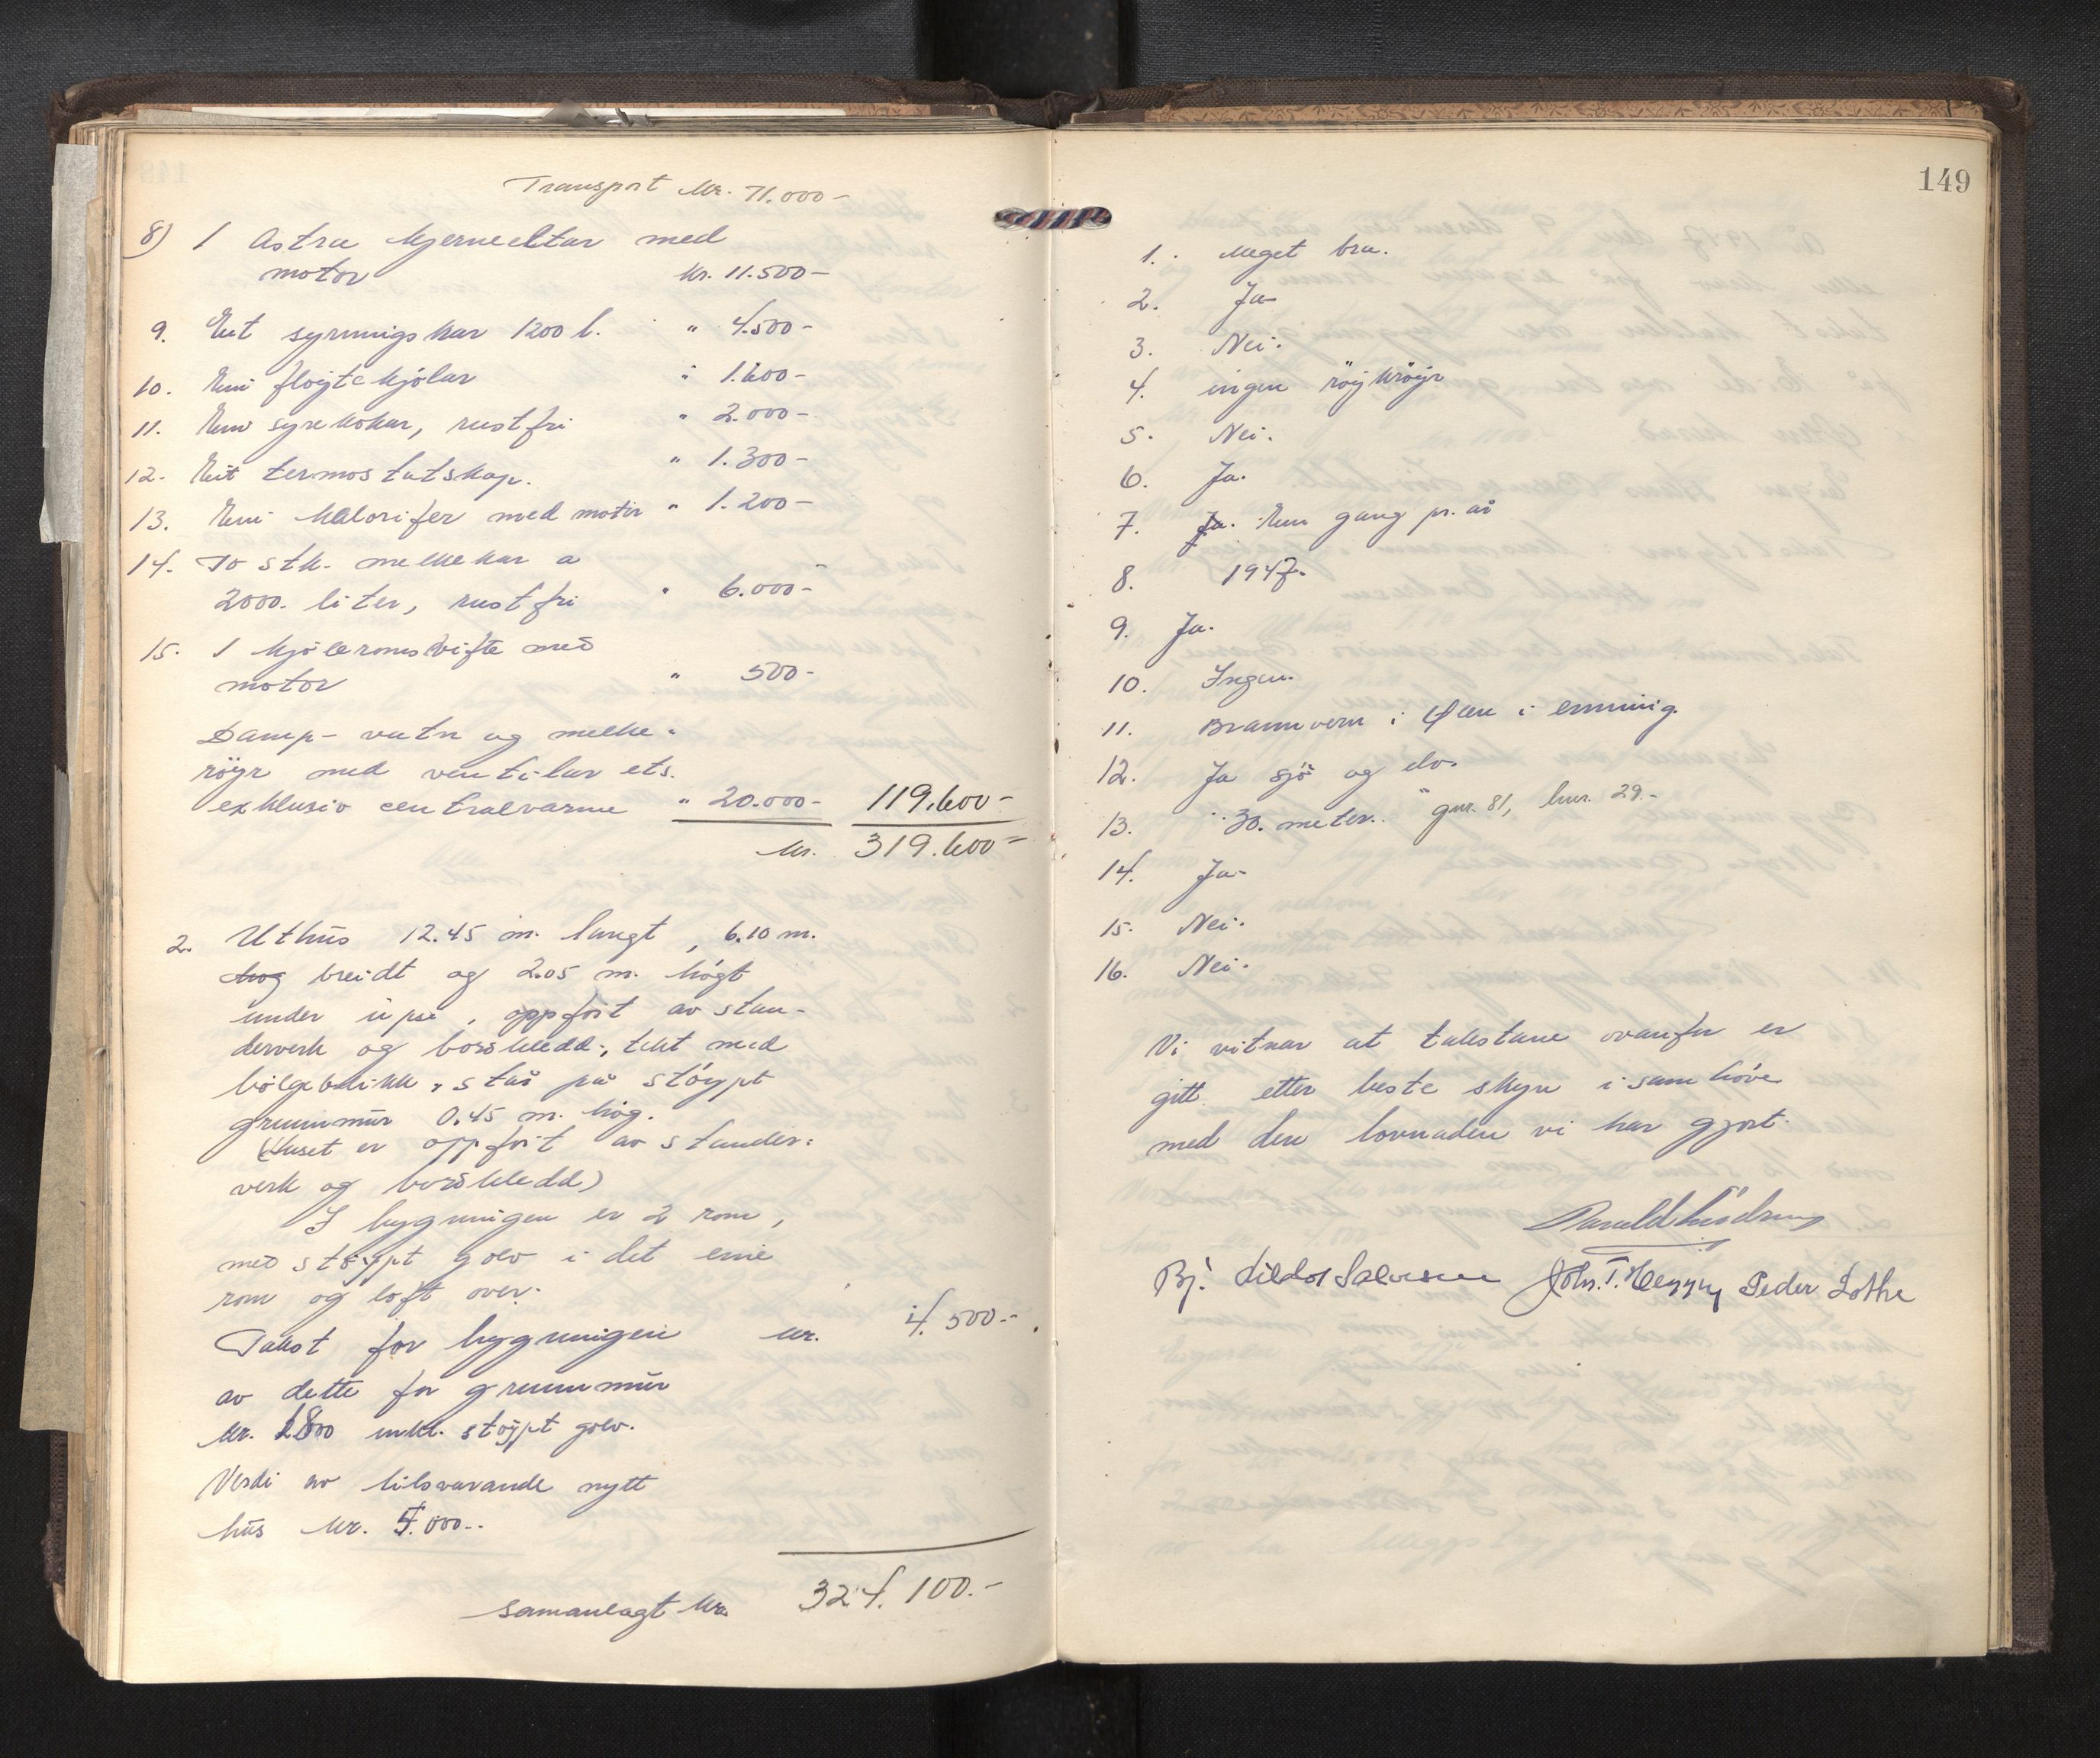 Transport kr. 71.000-
8) 1 Astra kjerneeltar med
motor kr. 11.500-
9. Eit syrningskar 1200 l. " 4.500-
10. Ein fløytekjølar " 1.600-
11. Ein syrekokar, rustfri " 2.000-
12. Eit termostatskap. " 1.300-
13. Ein kalorifer med motor " 1.200-
14. To stk. melkekar a
2000. liter, rustfri " 6.000-
15. 1 kjøleromsvifte med
motor " 500-
Damp- vatn og melke-
røyr med ventilar ets.
exklusiv centralvarme " 20.000- 119.600-
kr. 319.600-
2. Uthus 12.45 m. langt, 6.10 m.
høg breidt og 2.05 m. høgt
under upsa, oppført av stan-
derverk og bordkledd, tekt med
bølgeblikk, står på støypt
grunnmur 0.45 m. høg.
(Huset er oppført av stander:
verk og bordkledd)
I bygningen er 2 rom,
med støypt golv i det eine
rom og loft over.
Takst for bygningen kr. 4.500.-
av dette for grunnmur
kr. 1800 inkl. støypt golv.
Verdi av tilsvarande nytt
hus kr. 5.000.-
samanlagt kr. 324.100.-
149
1. Meget bra.
2. Ja
3. Nei.
4. ingen røykrøyr
5. Nei.
6. Ja.
7. Ja. Ein gang pr. år
8. 1947.
9. Ja.
10. Ingen.
11. Brannvern i Ølen i emning.
12. Ja sjø og elv.
13. 30. meter. gnr. 81, bnr. 29.-
14. Ja-
15. Nei.
16. Nei.
Vi vitnar at takstane ovanfor er
gitt etter beste skyn i samhøve
med den lovnaden vi har gjort.
Harald
Bj. Salvesen Peder Lothe